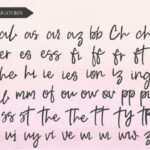 LIGATURES
al as ar az bb Ch ch
er es ess fi ff fr ft
he hi ie ies ion iz ing
mm of ou ow ov pp
ss st the the tt ty th
ui uy vi ve